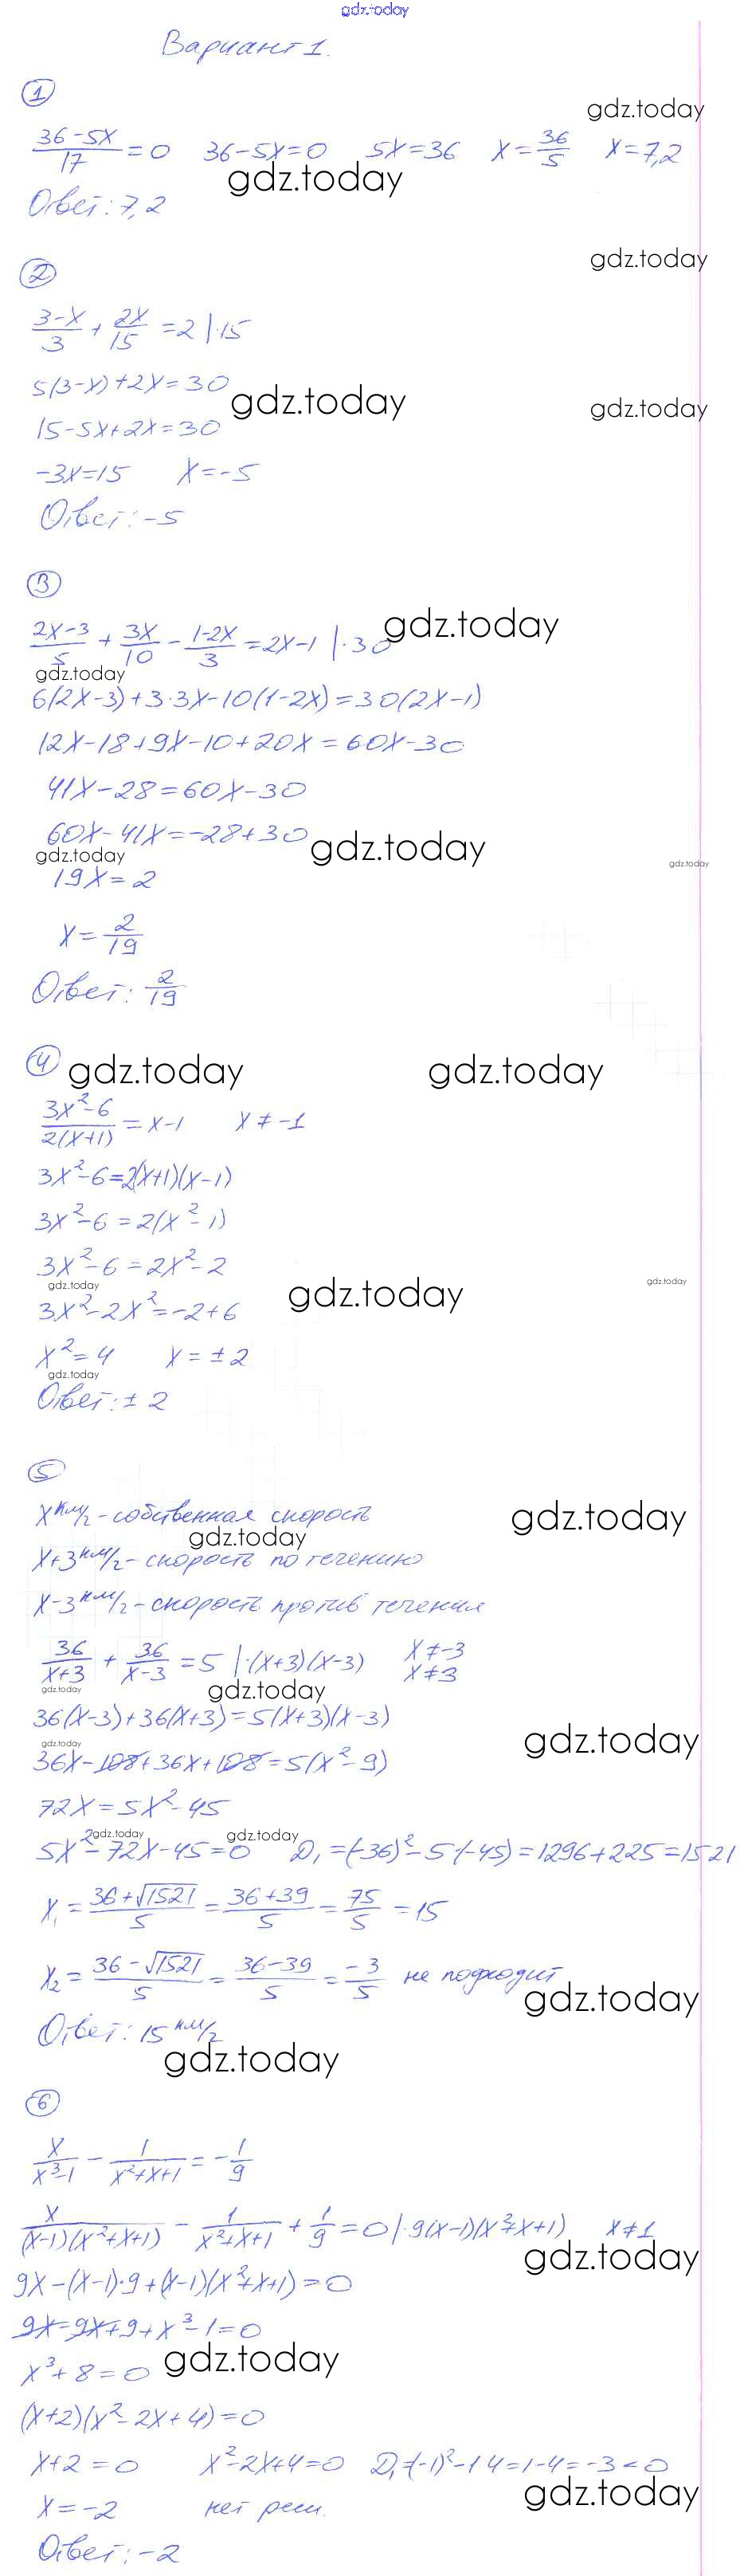 gdz.today
Вариант 1.
1
gdz.today
(36-5x)/17 = 0 36-5x=0 5x=36 x=36/5 x=7,2
gdz.today
Ответ: 7,2
2
gdz.today
(3-x)/3 + 2x/15 = 2 |·15
5(3-x)+2x=30
gdz.today
gdz.today
15-5x+2x=30
-3x=15 x=-5
Ответ: -5
3
gdz.today
(2x-3)/5 + 3x/10 - (1-2x)/3 = 2x-1 |·30
gdz.today
6(2x-3)+3·3x-10(1-2x)=30(2x-1)
12x-18+9x-10+20x=60x-30
41x-28=60x-30
60x-41x=-28+30
gdz.today
gdz.today
gdz.today
19x=2
x=2/19
Ответ: 2/19
4
gdz.today
gdz.today
(3x²-6)/(2(x+1)) = x-1 x≠-1
3x²-6=2(x+1)(x-1)
3x²-6=2(x²-1)
3x²-6=2x²-2
gdz.today
gdz.today
gdz.today
3x²-2x²=-2+6
x²=4 x=±2
gdz.today
Ответ: ±2
5
x км/г - собственная скорость
gdz.today
gdz.today
x+3 км/г - скорость по течению
x-3 км/г - скорость против течения
36/(x+3) + 36/(x-3) = 5 |·(x+3)(x-3) x≠-3 x≠3
gdz.today
gdz.today
36(x-3)+36(x+3)=5(x+3)(x-3)
gdz.today
gdz.today
36x-108+36x+108=5(x²-9)
72x=5x²-45
gdz.today
gdz.today
5x²-72x-45=0 D₁=(-36)²-5·(-45)=1296+225=1521
x₁=(36+√1521)/5=(36+39)/5=75/5=15
x₂=(36-√1521)/5=(36-39)/5=-3/5 не подходит
gdz.today
Ответ: 15 км/г
gdz.today
6
x/(x³-1) - 1/(x²+x+1) = -1/9
x/((x-1)(x²+x+1)) - 1/(x²+x+1) + 1/9 = 0 |·9(x-1)(x²+x+1) x≠1
gdz.today
9x-(x-1)·9+(x-1)(x²+x+1)=0
9x-9x+9+x³-1=0
gdz.today
x³+8=0
(x+2)(x²-2x+4)=0
x+2=0 x²-2x+4=0 D₁=(-1)²-1·4=1-4=-3<0
gdz.today
x=-2 нет реш.
Ответ: -2